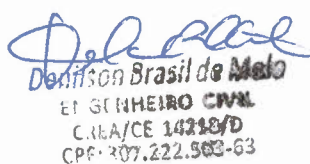 Denilson Brasil de Melo
ENGENHEIRO CIVIL
CREA/CE 14218/D
CPF: 307.222.503-63